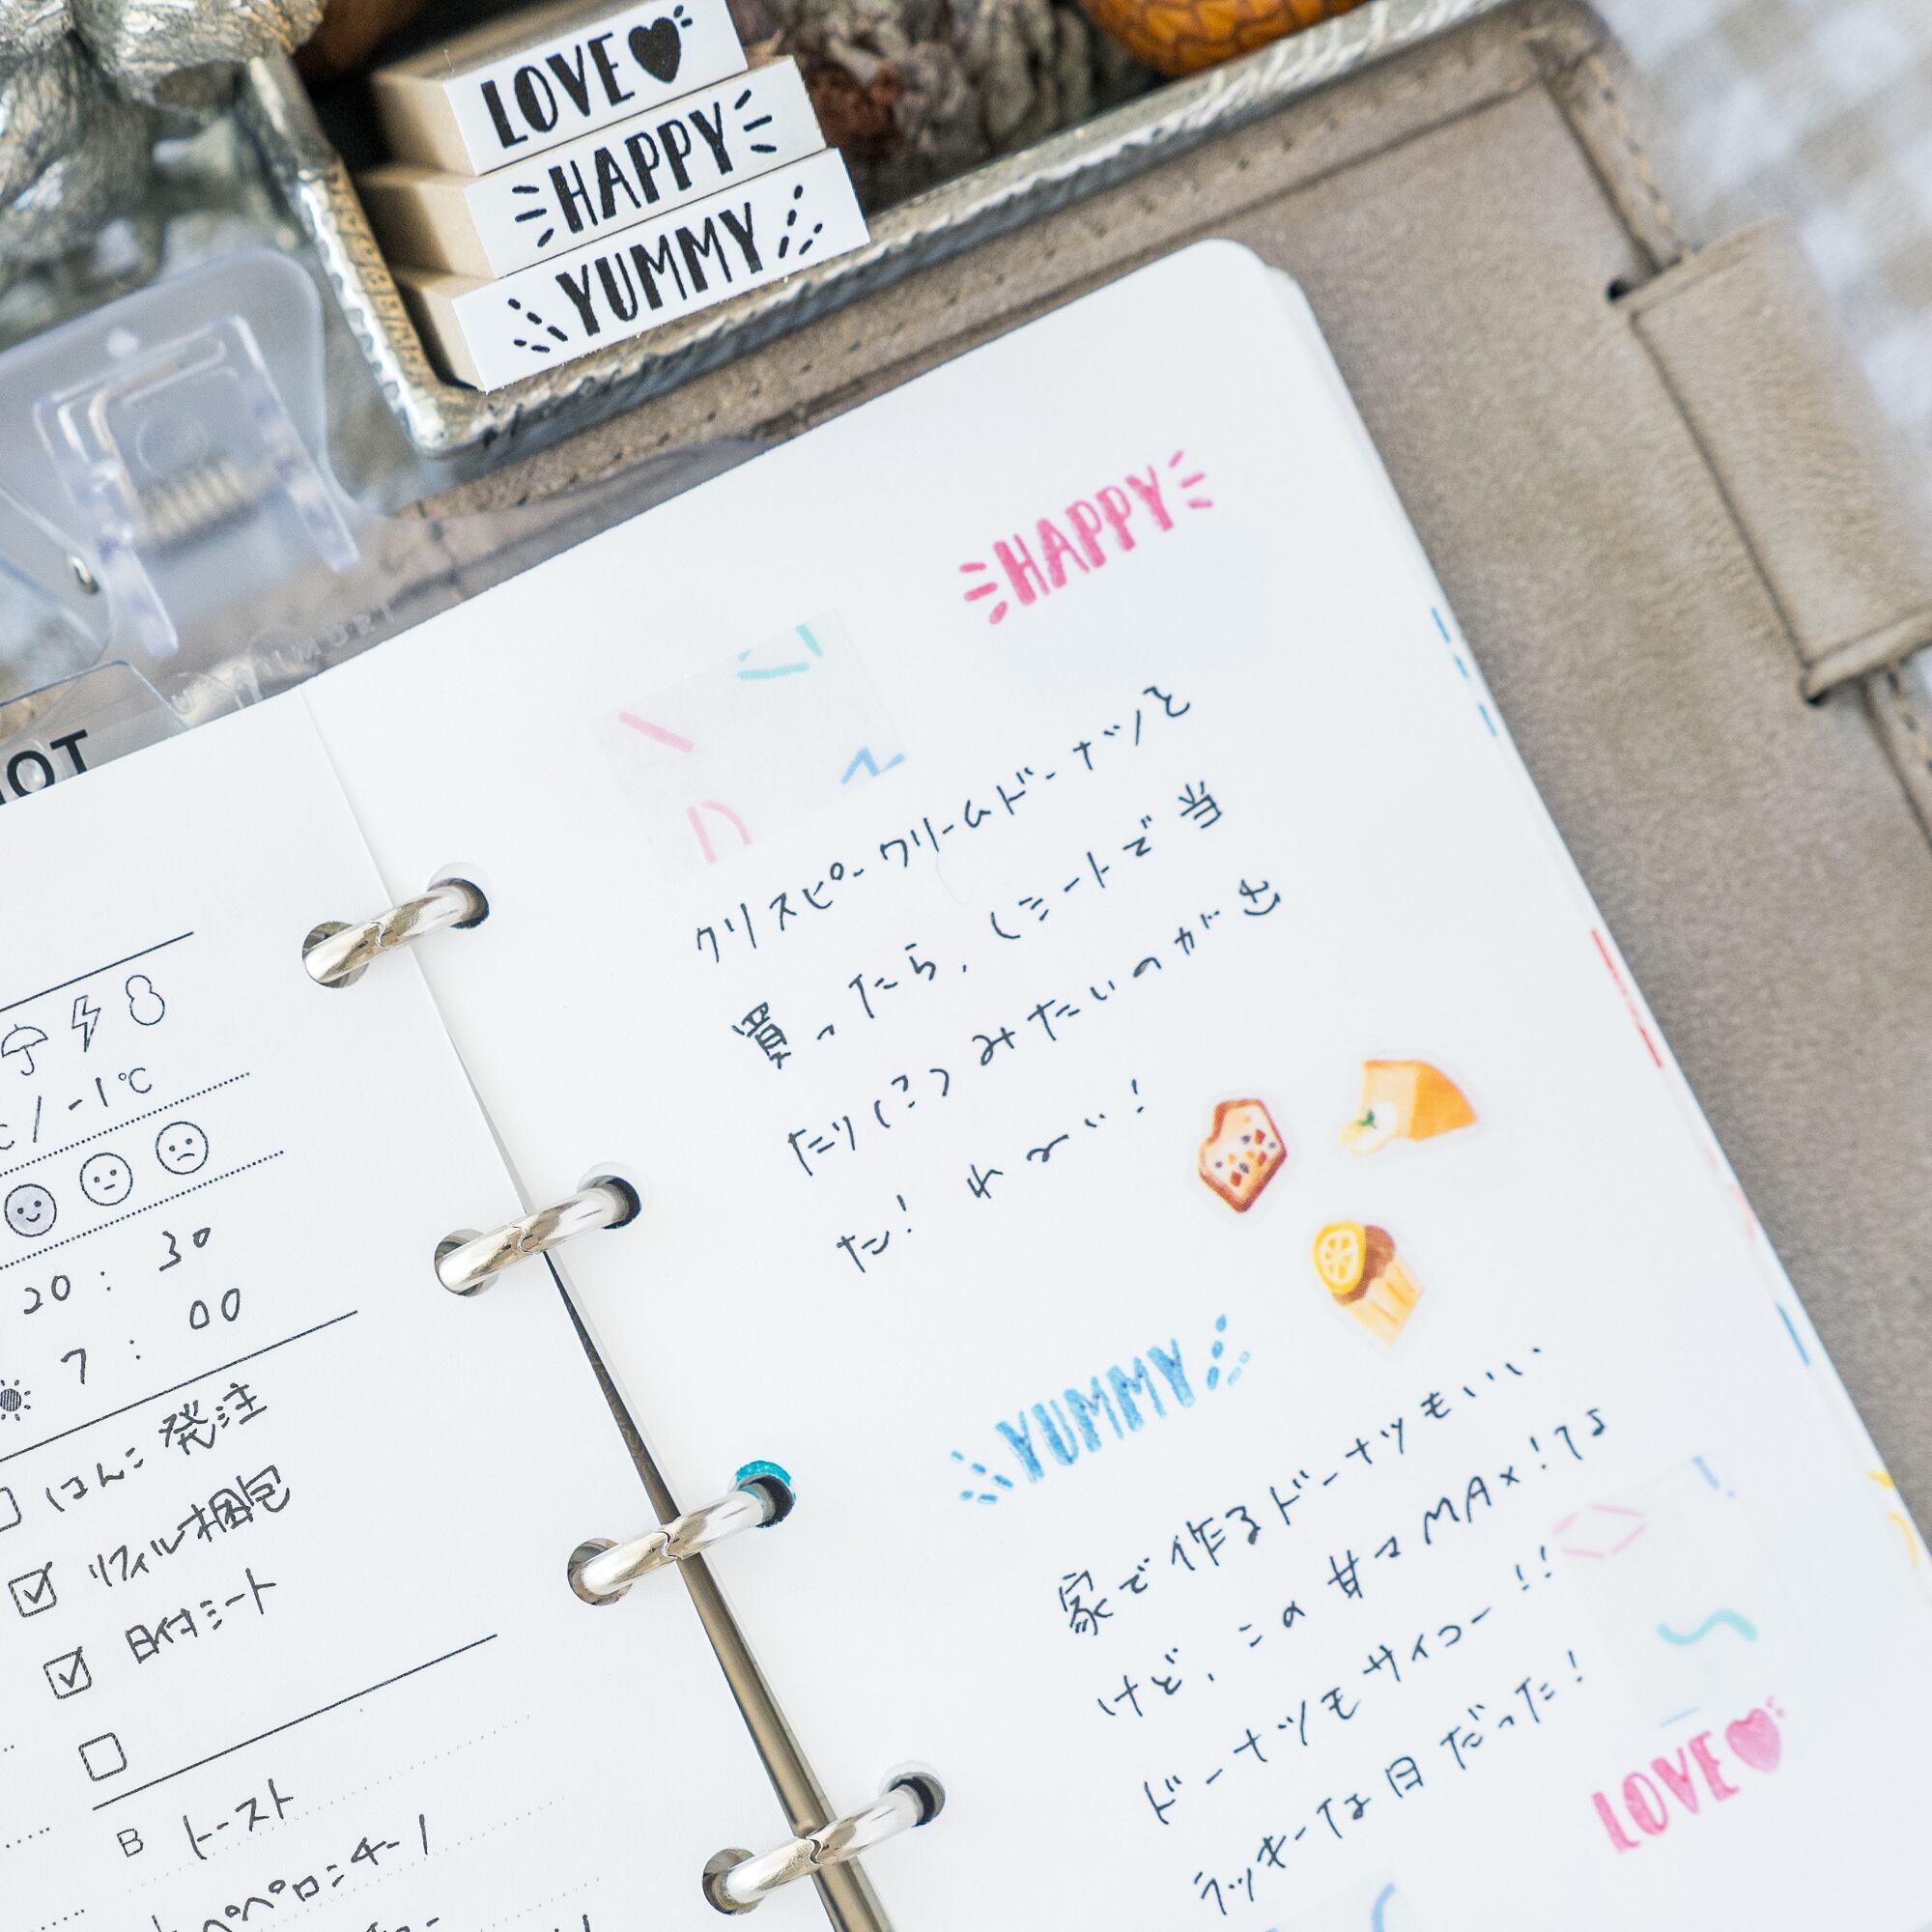 LOVE
HAPPY
YUMMY
HAPPY
クリスピークリームドーナツを
買ったら、シートで当
たりくじみたいのが出
た! わーい!
YUMMY
家で作るドーナツもいい
けど、この甘々MAX!な
ドーナツもサイコー!!
ラッキーな日だった!
LOVE
-1℃
20:30
7:00
はんこ発注
リフィル梱包
日付シート
B トースト
ペペロンチーノ